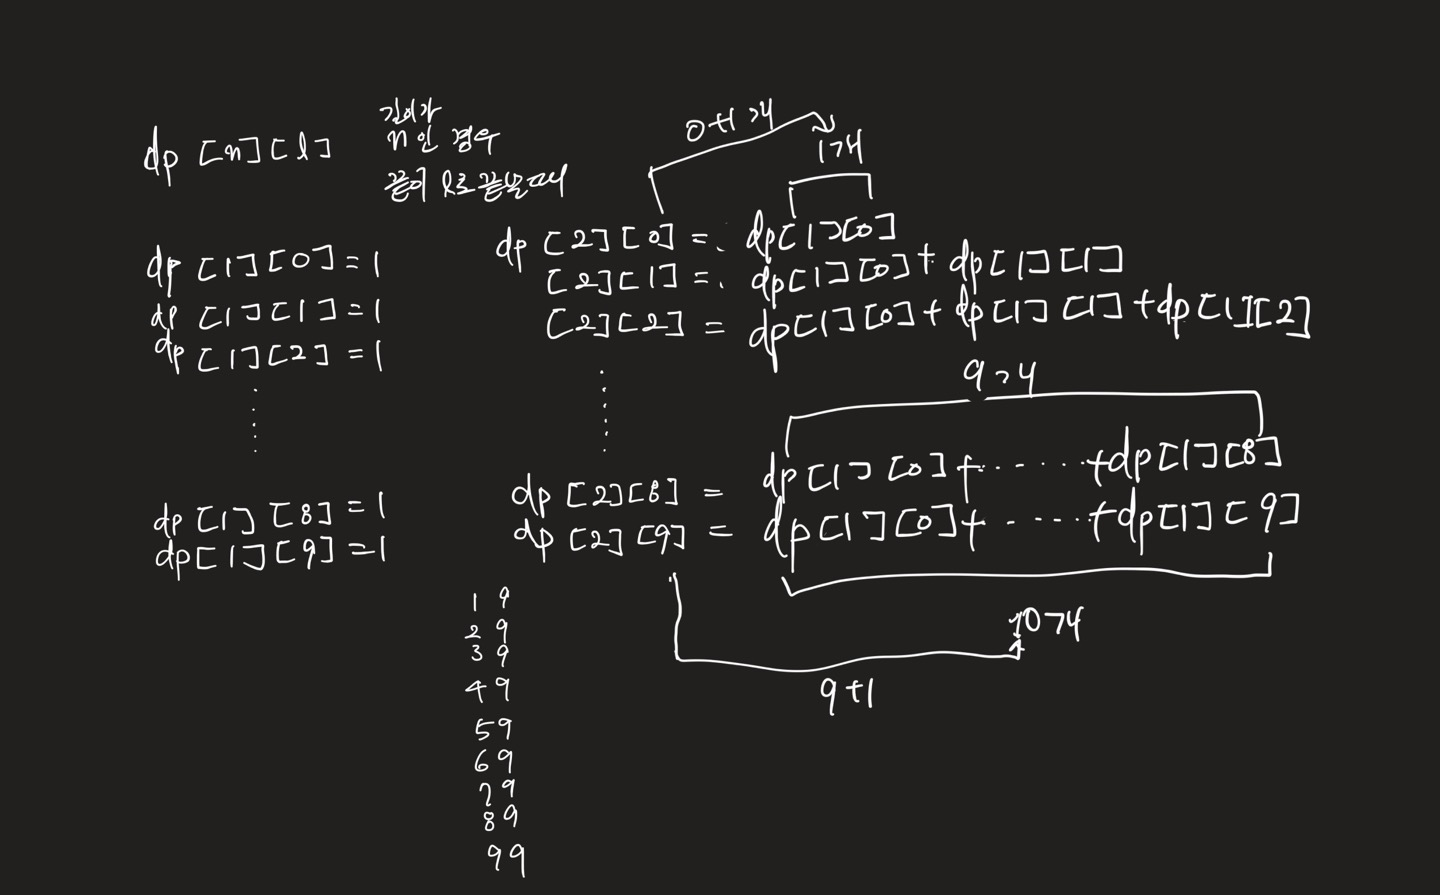 dp [n][l]
길이가
n인 경우
끝이 l로 끝날때
dp [1][0] = 1
dp [1][1] = 1
dp [1][2] = 1
dp [1][8] = 1
dp [1][9] = 1
0+1개
1개
dp [2][0] = dp[1][0]
[2][1] = dp[1][0] + dp[1][1]
[2][2] = dp[1][0] + dp[1][1] + dp[1][2]
9개
dp [2][8] = dp[1][0] + ...... + dp[1][8]
dp [2][9] = dp[1][0] + ...... + dp[1][9]
10개
9+1
1 9
2 9
3 9
4 9
5 9
6 9
7 9
8 9
9 9